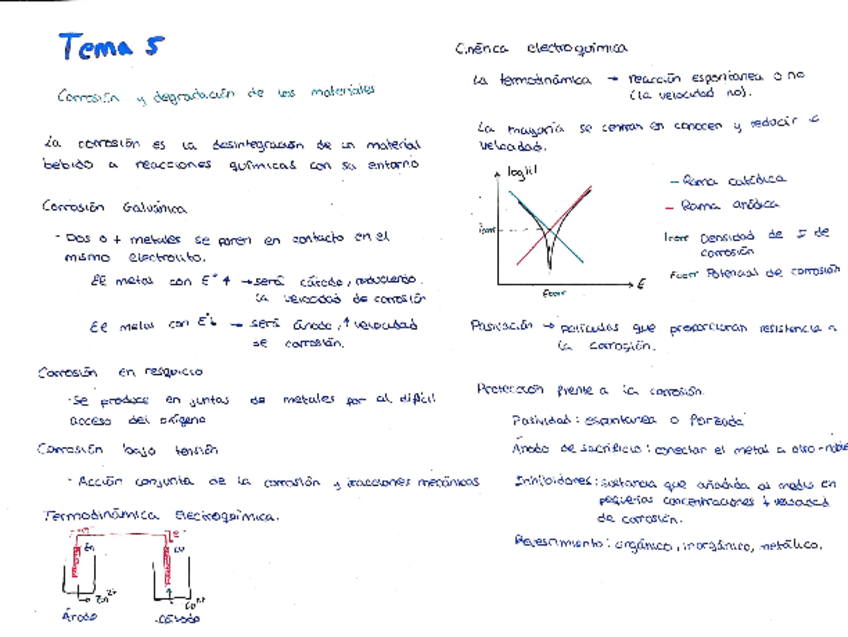 Tema 5
Corrosión y degradación de los materiales
La corrosión es la desintegración de un material
bebido a reacciones químicas con su entorno
Corrosión Galvánica
- Dos o + metales se ponen en contacto en el
mismo electrolito.
El metal con E° ↑ → será cátodo, reduciendo
la velocidad de corrosión
El metal con E°↓ → será ánodo, ↑ velocidad
de corrosión.
Corrosión en resquicio
- Se produce en juntas de metales por al difícil
acceso del oxígeno
Corrosión bajo tensión
- Acción conjunta de la corrosión y tracciones mecánicas
Termodinámica Electroquímica.
Zn
Cu
Zn²⁺
Cu²⁺
Ánodo
Cátodo
Cinética electroquímica
La termodinámica → reacción espontanea o no
(la velocidad no).
La mayoría se centran en conocen y reducir
velocidad.
log|i|
icorr
Ecorr
E
- Rama catódica
- Rama anódica
Icorr Densidad de I de
corrosión
Ecorr Potencial de corrosión
Pasivación → películas que proporcionan resistencia a
la corrosión.
Protección frente a la corrosión.
Pasividad: espontanea o forzada
Ánodo de sacrificio: conectar el metal a otro - noble
Inhibidores: sustancia que añadida al medio en
pequeñas concentraciones ↓ velocidad
de corrosión.
Revestimiento: orgánico, inorgánico, metálico.